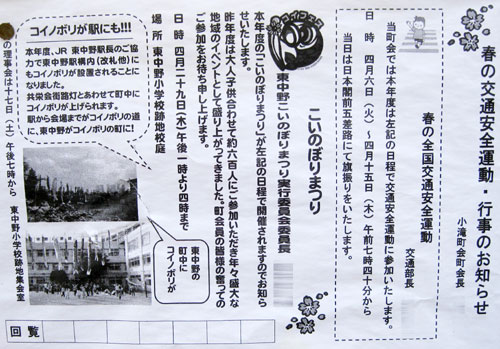 春の交通安全運動・行事のお知らせ
小滝町会町会長
春の全国交通安全運動
交通部長
当町会では本年度は左記の日程で交通安全運動に参加いたします。
日時 四月六日(火)〜四月十五日(木)午前七時四十分から
当日は日本閣前五差路にて旗振りをいたします。
コイノフェスタ
こいのぼりまつり
東中野こいのぼりまつり実行委員会委員長
本年度の「こいのぼりまつり」が左記の日程で開催されますのでお知ら
せいたします。
昨年度は大人子供合わせて約六百人にご参加いただき年々盛大な
地域のイベントとして盛り上がってきました。町会員の皆様の奮っての
ご参加をお待ち申し上げます。
日時 四月二十九日(木)午後一時より四時まで
場所 東中野小学校跡地校庭
コイノボリが駅にも!!!
本年度、JR東中野駅長のご協
力で東中野駅構内(改札他)に
もコイノボリが設置されることに
なりました。
共栄会街路灯とあわせて町中に
コイノボリが上げられます。
駅から会場までがコイノボリの道
に、東中野がコイノボリの町に!
東中野の
町中に
コイノボリが
の理事会は十七日(土)午後七時から 東中野小学校跡地集会室
回覧